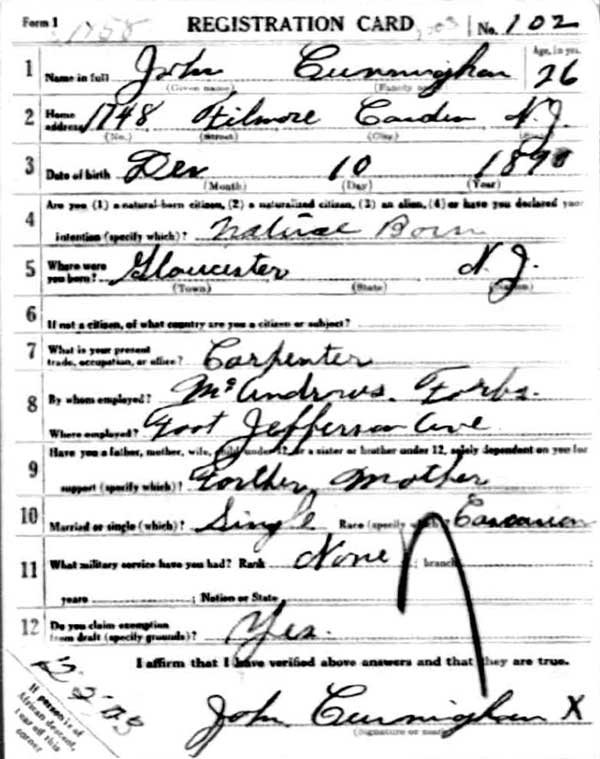 Form 1 1755 REGISTRATION CARD No. 102
1 Name in full John Cunningham Age, in yrs. 26
(Given name) (Family name)
2 Home address 1748 Filmore Camden N.J.
(No.) (Street) (City) (State)
3 Date of birth Dec 10 1890
(Month) (Day) (Year)
Are you (1) a natural-born citizen, (2) a naturalized citizen, (3) an alien, (4) or have you declared your
4 intention (specify which)? Natural Born
5 Where were you born? Gloucester N.J.
(Town) (State) (Nation)
6 If not a citizen, of what country are you a citizen or subject?
7 What is your present trade, occupation, or office? Carpenter
8 By whom employed? McAndrews. Forbs.
Where employed? Foot Jefferson Ave
Have you a father, mother, wife, child under 12, or a sister or brother under 12, solely dependent on you for
9 support (specify which)? Mother
10 Married or single (which)? Single Race (specify which)?
11 What military service have you had? Rank None ; branch ;
years ; Nation or State
12 Do you claim exemption from draft (specify grounds)? Yes.
I affirm that I have verified above answers and that they are true.
John Cunningham X
(Signature or mark)
If person is of
African descent,
tear off this
corner